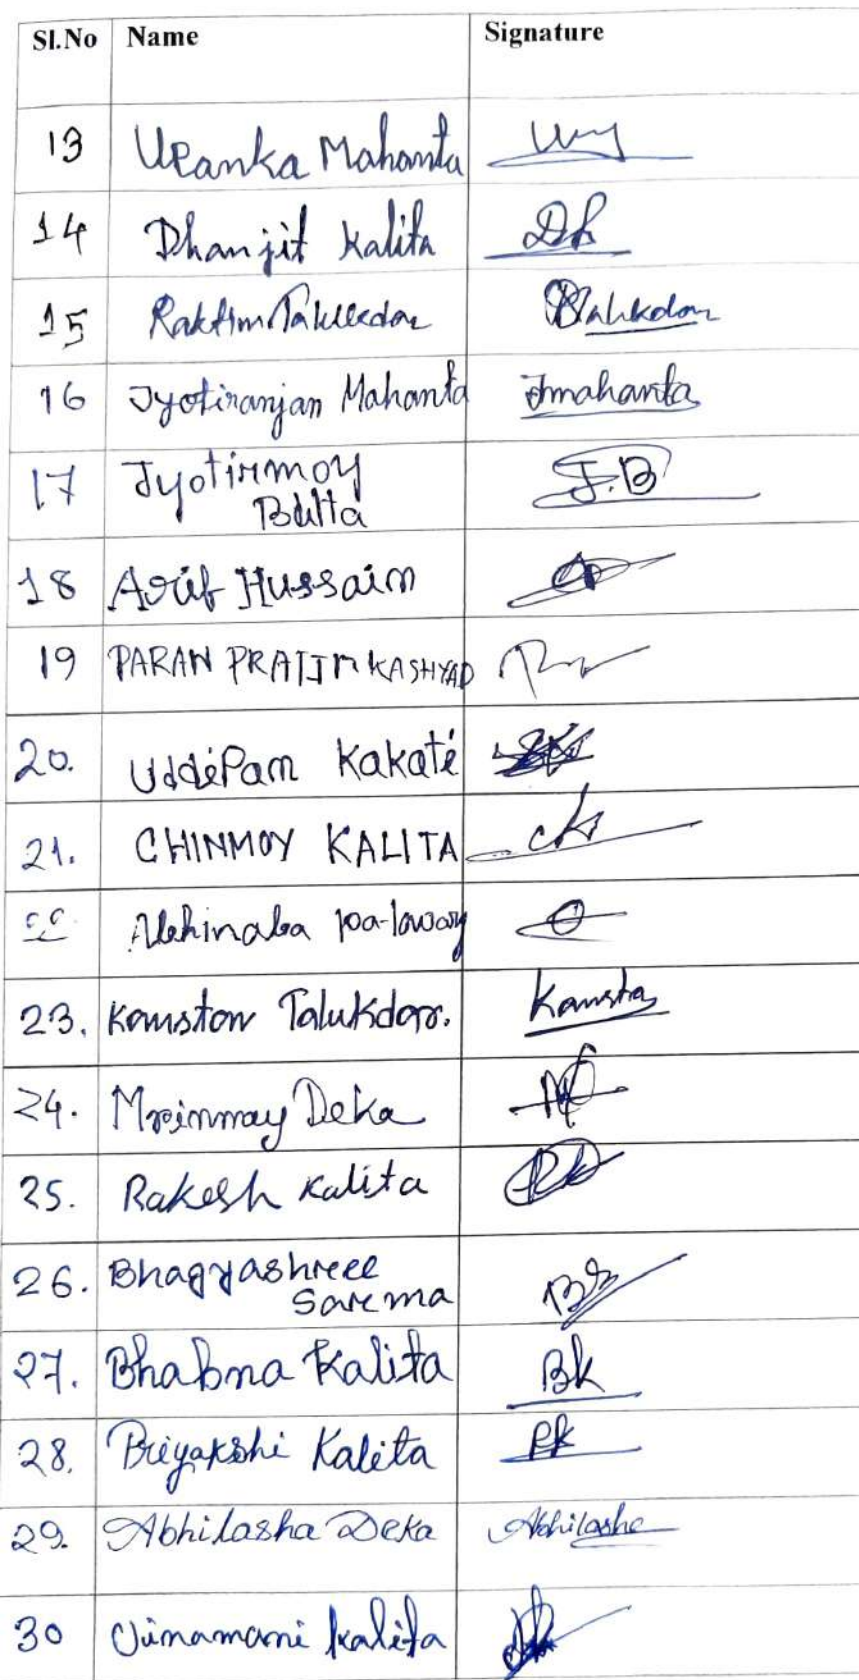 Sl.No Name Signature
13 Upanka Mahanta
14 Dhanjit Kalita Dk
15 Raktim Talukdar
16 Jyotiranjan Mahanta Jmahanta
17 Jyotirmoy J.B
18 Arif Hussain
19 PARAN PRATIM KASHYAP
20. Uddipam Kakati
21. CHINMOY KALITA ck
23. Kamston Talukdar. Kamsta
24. Mrinmay Deka
25. Rakesh Kalita
26. Bhagyashree BS
Sarma
27. Bhabna Kalita Bk
28. Priyakshi Kalita PK
29. Abhilasha Deka Abhilasha
30 Jinamani Kalita